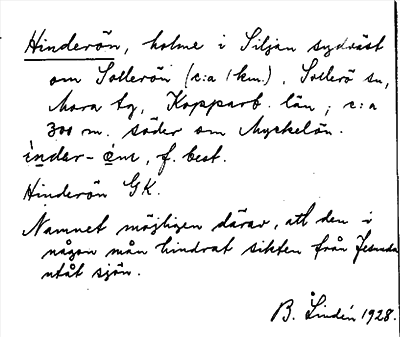 Hinderön, holme i Siljan sydväst
om Sollerön (c:a 1 km.), Sollerö sn,
Mora tg, Kopparb. län; c:a
300 m. söder om Myckelön.
ìnder-ө̀nɩ, f. best.
Hinderön GK.
Namnet möjligen därav, att den i
någon mån hindrat sikten från Jesunda
utåt sjön.
B. Lindén 1928.